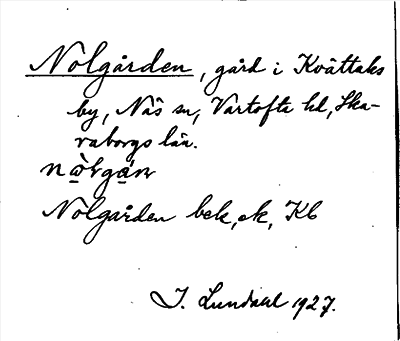 Nolgården, gård i Kvättaks
by, Näs sn, Vartofta hd, Ska-
raborgs län.
Nolgården bek, ek, Kb
I. Lundahl 1927.